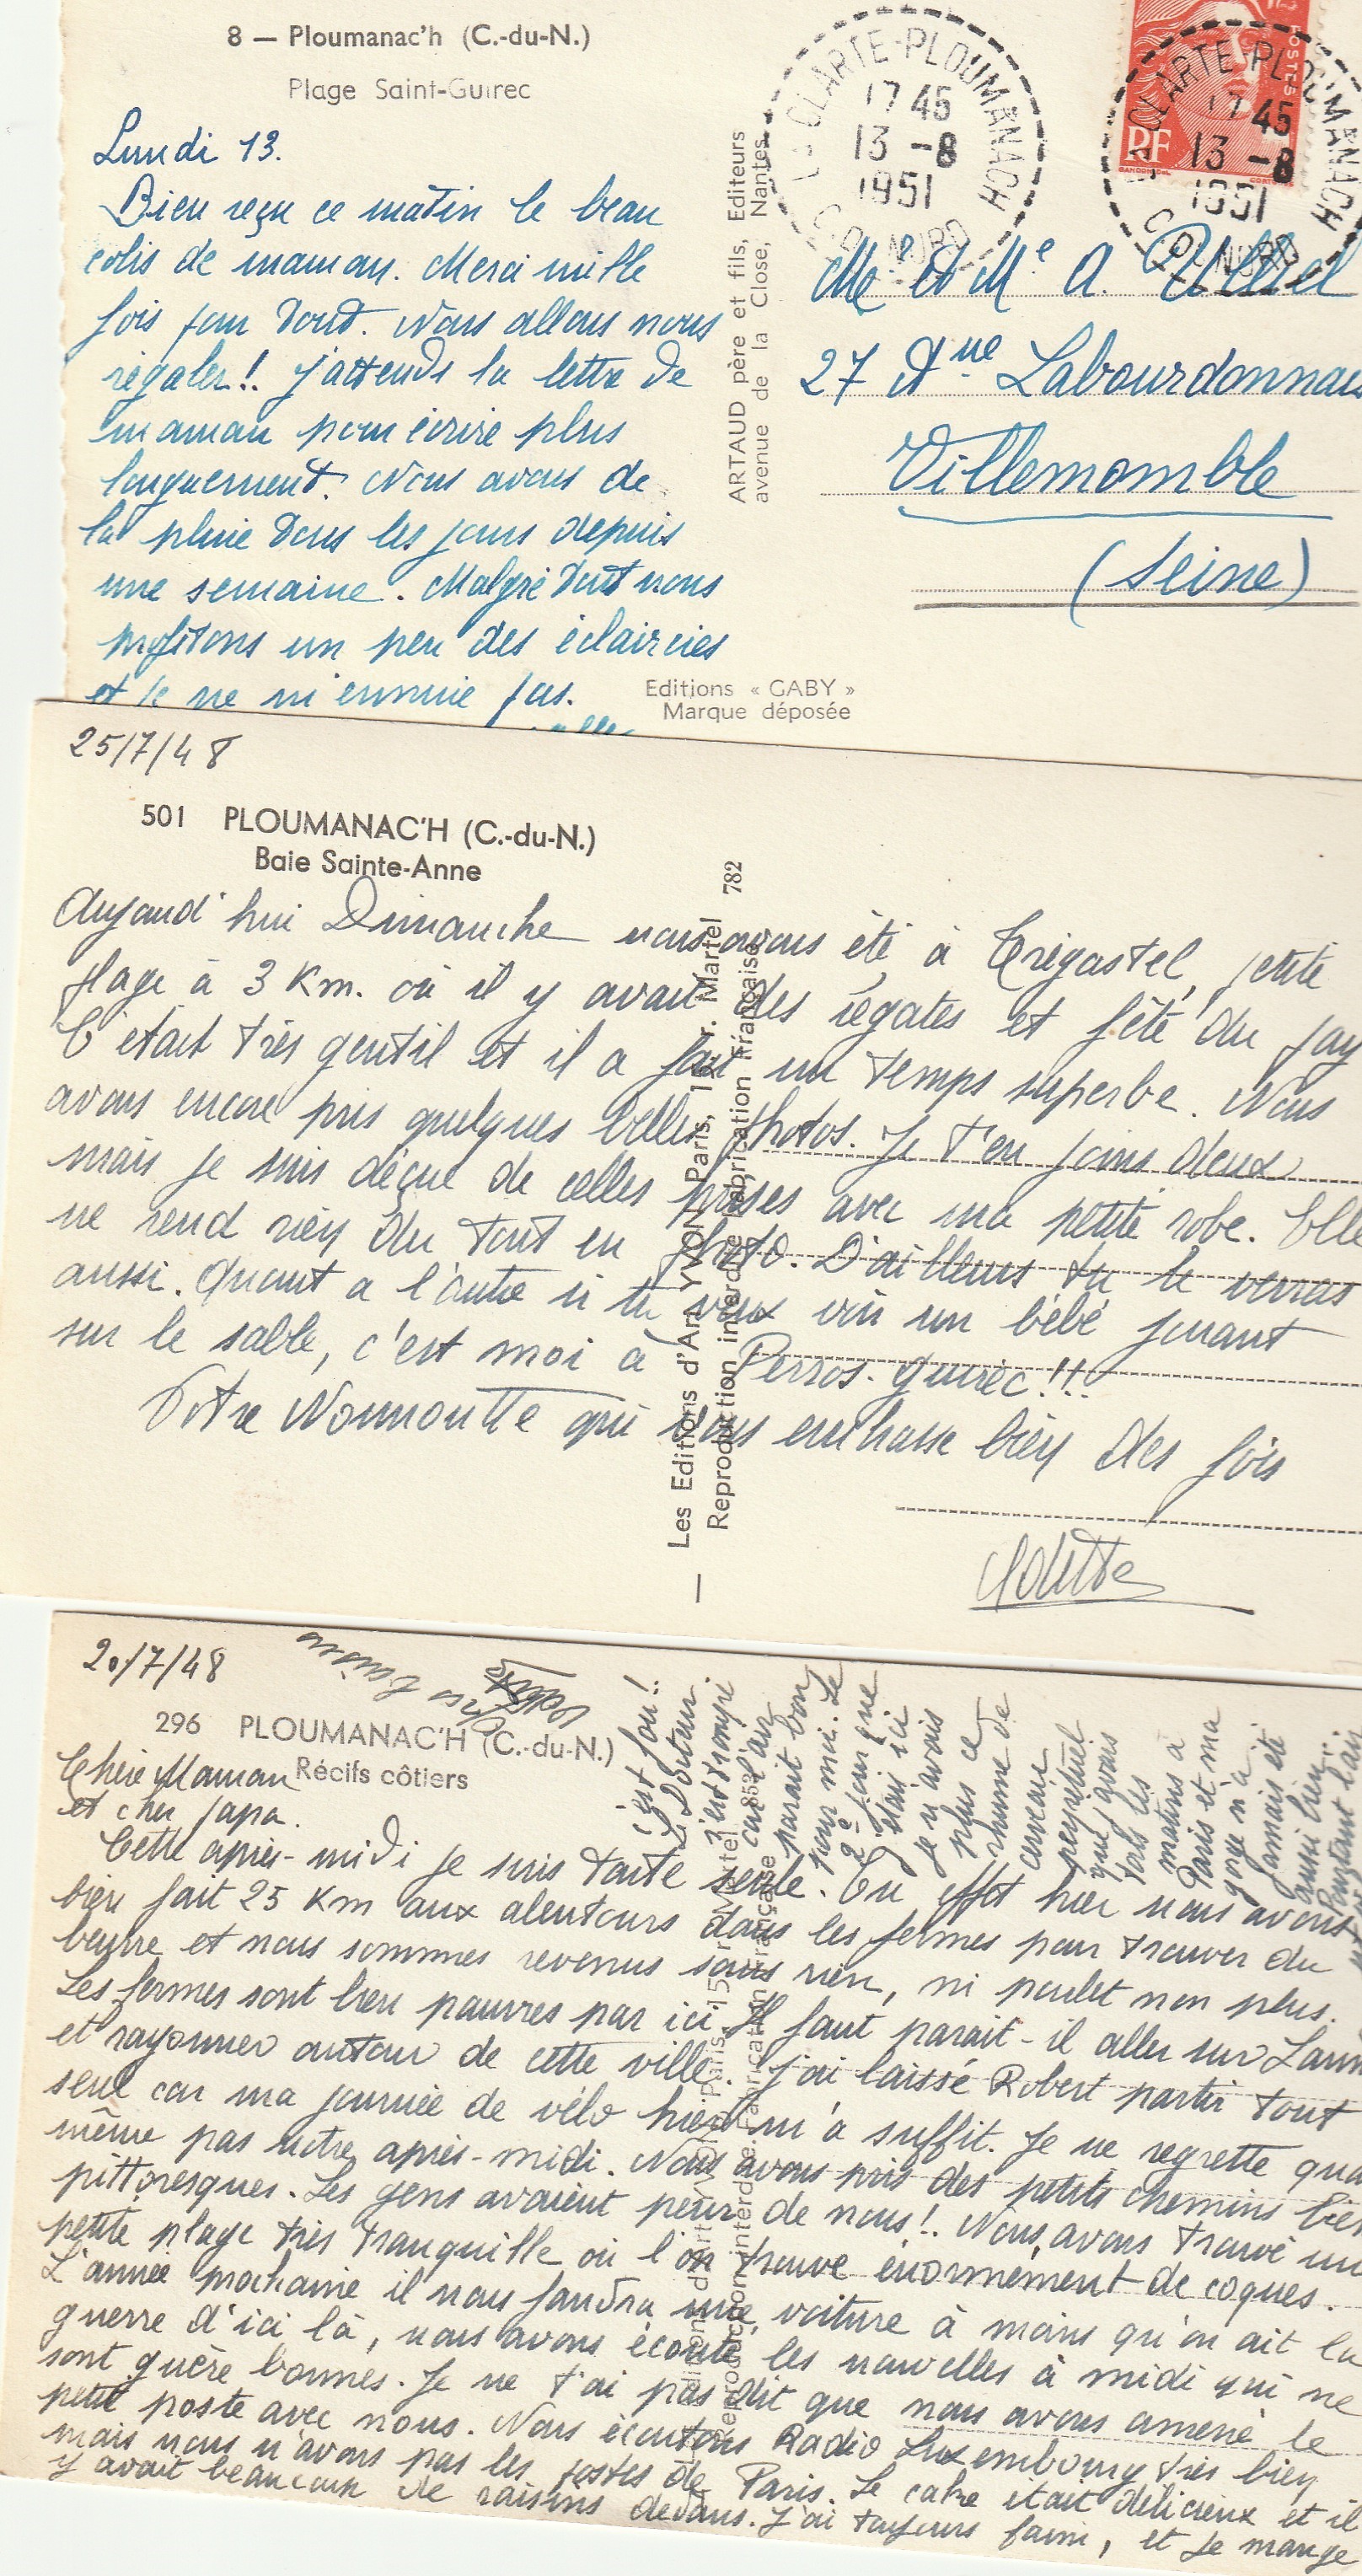 8 — Ploumanac'h (C.-du-N.)
Plage Saint-Guirec
Lundi 13.
Bien reçu ce matin le beau
colis de maman. Merci mille
fois pour tout. Nous allons nous
régaler!. J'attends la lettre de
maman pour écrire plus
longuement. Nous avons de
la pluie tous les jours depuis
une semaine. Malgré tout nous
profitons un peu des éclaircies
et je ne m'ennuie pas.
ARTAUD père et fils, Editeurs
avenue de la Close, Nantes
Editions « GABY »
Marque déposée
LA CLARTE-PLOUMANACH
17 45
13 -8
1951
C. DU NORD
POSTES
RF
LA CLARTE-PLOUMANACH
17 45
13 -8
1951
C. DU NORD
Mr et Me A.
27 Anue Labourdonnais
Villemomble
(Seine)
25/7/48
501 PLOUMANAC'H (C.-du-N.)
Baie Sainte-Anne
Aujourd'hui Dimanche nous avons été à Trégastel, petite
plage à 3 Km. où il y avait des régates et fête du pay
C'était très gentil et il a fait un temps superbe. Nous
avons encore pris quelques belles photos. Je t'en joins deux
mais je suis déçue de celles prises avec ma petite robe. Elle
ne rend rien du tout en photo. D'ailleurs tu le verras
aussi. Quant a l'autre si tu veux voir un bébé jouant
sur le sable, c'est moi à Perros-Guirec!!!
Votre Nounoutte qui vous embrasse bien des fois
Odette
Les Editions d'Art YVON, Paris, 15, r. Martel
Reproduction interdite Fabrication Française
782
20/7/48
296 PLOUMANAC'H (C.-du-N.)
Récifs côtiers
Chère Maman
et cher papa.
Cette après-midi je suis toute seule. En effet hier nous avons
bien fait 25 Km aux alentours dans les fermes pour trouver du
beurre et nous sommes revenus sans rien, ni poulet non plus.
Les fermes sont bien pauvres par ici. Il faut parait-il aller sur Lann
et rayonner autour de cette ville. J'ai laissé Robert partir tout
seul car ma journée de vélo hier m'a suffit. Je ne regrette qua
même pas notre après-midi. Nous avons pris des petits chemins bien
pittoresques. Les gens avaient peur de nous!. Nous avons trouvé un
petite plage très tranquille où l'on trouve énormément de coques.
L'année prochaine il nous faudra une voiture à moins qu'on ait la
guerre d'ici là, nous avons écouté les nouvelles à midi qui ne
sont guère bonnes. Je ne t'ai pas dit que nous avons amené le
petit poste avec nous. Nous écoutons Radio Luxembourg très bien
mais nous n'avons pas les postes de Paris. Le cake était délicieux et il
y avait beaucoup de raisins dedans. J'ai toujours faim, et je mange
c'est fou!!
Le Docteur
s'est trompé
car l'air
parait bon
pour moi. Le
2e jour que
j'étais ici
je n'avais
plus ce
rhume de
cerveau
perpétuel
que j'avais
tous les
matins à
Paris et ma
gorge n'a
jamais été
aussi bien..
Pourtant l'air
Les Editions d'Art YVON, Paris, 15, r. Martel
Reproduction interdite. Fabrication Française
853